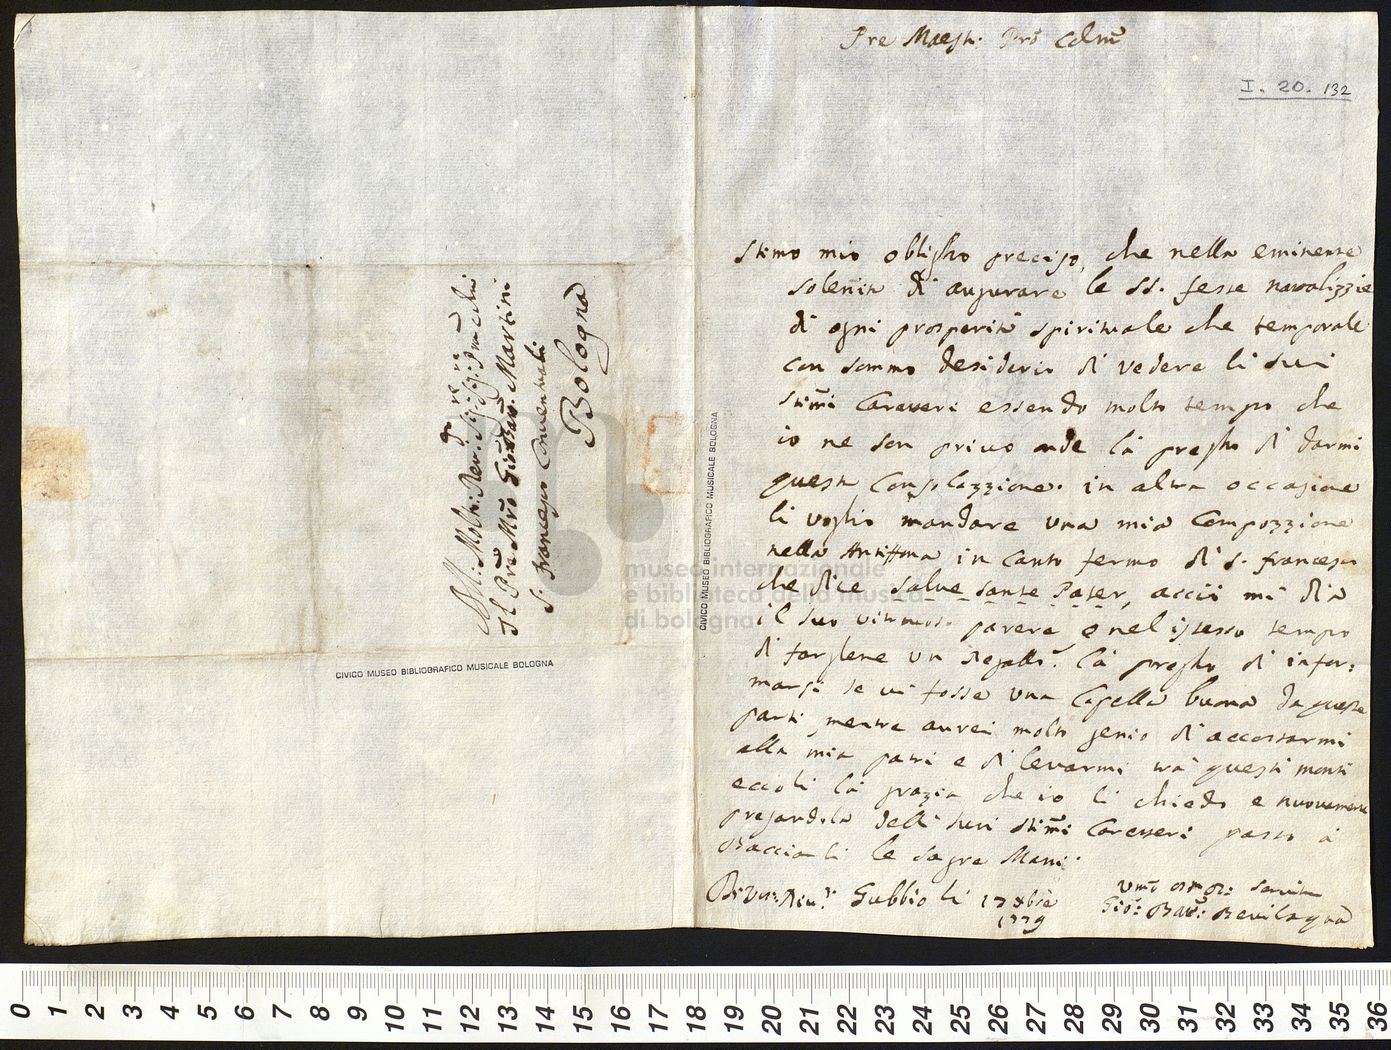 Pre Maestr. Pro͠n Colm͠o
I. 20. 132
Stimo mio obbligho preciso, che nella eminente
solenità di augurare le SS. feste natalizzie
di ogni prosperità spirituale che temporale
con sommo desiderio di vedere li suoi
stim͠i Caratteri essendo molto tempo che
io ne son privo onde la pregho di darmi
questa Consolazzione. in altra occasione
li voglio mandare una mia Compozzione
nella Antiffona in Canto fermo di S. Francesco
che dice Salve Sante Pater, acciò mi dia
il suo virtuoso parere e nel istesso tempo
di farglene un regallo. La pregho di infor:
marsi se vi fosse una Capella buona da queste
parti mentre aurei molto genio di accostarmi
alla mia patri e di levarmi trà questi monti
eccoli la grazia che io li chiedo e nuovamente
pregandola delli suoi stim͠i Caratteri passo à
Bacciarli le sagre Mani.
Di V. Riu.
Gubbio li 17 Xbre
1779
Um͠o
Servitore
Gio͠: Bat͠t: Bevilaqua
Al Molt: Rev:
Il Pre͠ M͠ro Gio͠: Bat͠t. Martini
S. Francesco Conventuali
Bologna
CIVICO MUSEO BIBLIOGRAFICO MUSICALE BOLOGNA
CIVICO MUSEO BIBLIOGRAFICO MUSICALE BOLOGNA
museo internazionale
e biblioteca della musica
di bologna
0 1 2 3 4 5 6 7 8 9 10 11 12 13 14 15 16 17 18 19 20 21 22 23 24 25 26 27 28 29 30 31 32 33 34 35 36